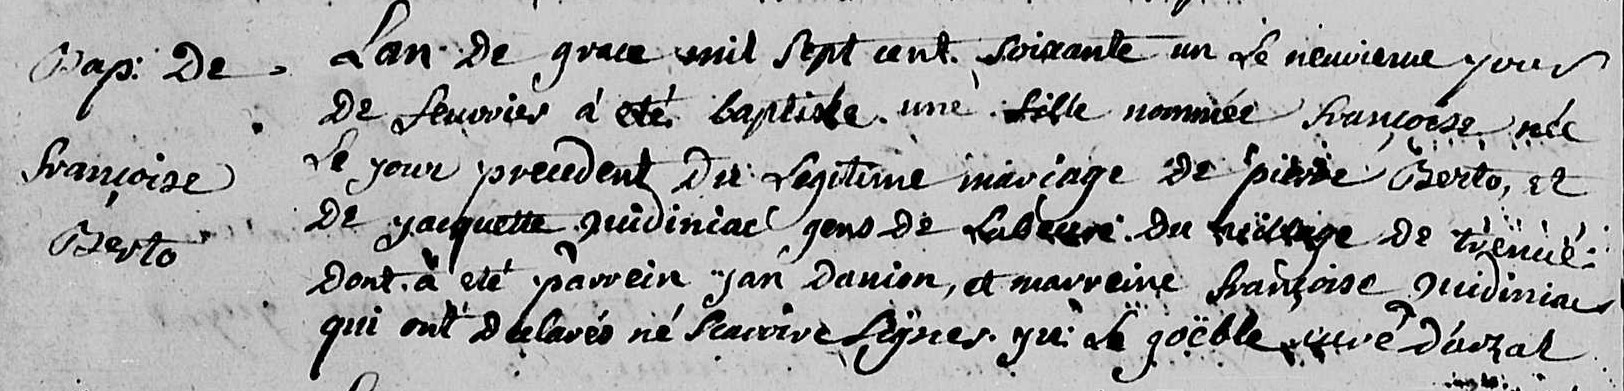 Bap: De
françoise
Berto
Lan De grace mil sept cent soixante un Le neuvieme jour
De feuvrier á eté baptisée une fille nommée françoise née
Le jour precedent Du Legitime mariage De pierre Berto, et
De jacquette nidiniac gens De Labeure Du village De trenué
Dont à eté parrein jan Danion, et marreine françoise nidiniac
qui ont Declarés né scavoire signer. le goëble curé D'arzal